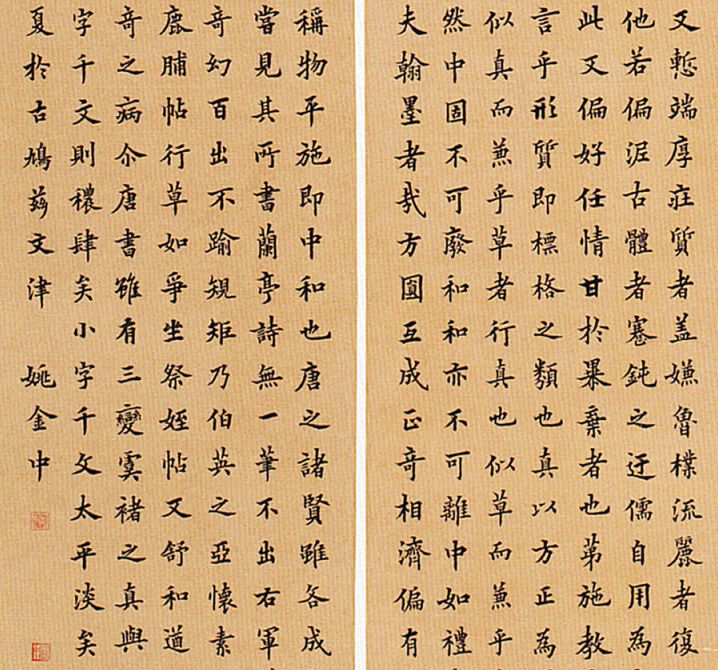 又慙端厚莊質者蓋嫌魯樸流麗者復
他若偏泥古體者蹇鈍之迂儒自用為
此又偏好任情甘於暴棄者也第施教
言乎形質即標格之類也真以方正為
似真而兼乎草者行真也似草而兼乎
然中固不可廢和和亦不可離中如禮
夫翰墨者哉方圓互成正奇相濟偏有
稱物平施即中和也唐之諸賢雖各成
嘗見其所書蘭亭詩無一筆不出右軍
奇幻百出不踰規矩乃伯英之亞懷素
鹿脯帖行草如爭坐祭姪帖又舒和道
奇之病尒唐書雖有三變虞褚之真與
字千文則穠肆矣小字千文太平淡矣
夏於古鳩茲文津 姚金中